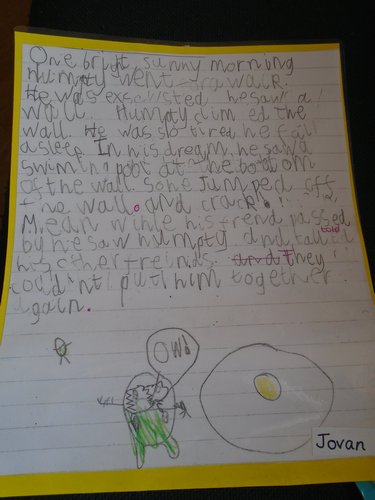 One bright sunny morning
humpty went for a walk.
He was exsewsted. he saw a
wall. Humpty clim ed the
wall. He was so tired he fall
asleep. In his dream he saw a
swiming pool at the bottom
of the wall. so he Jumped off
the wall. and crack!!!
Mean while his frend passed
by he saw humpty and told
his other freinds. They
couldn't put him together
again.
OW!
Jovan